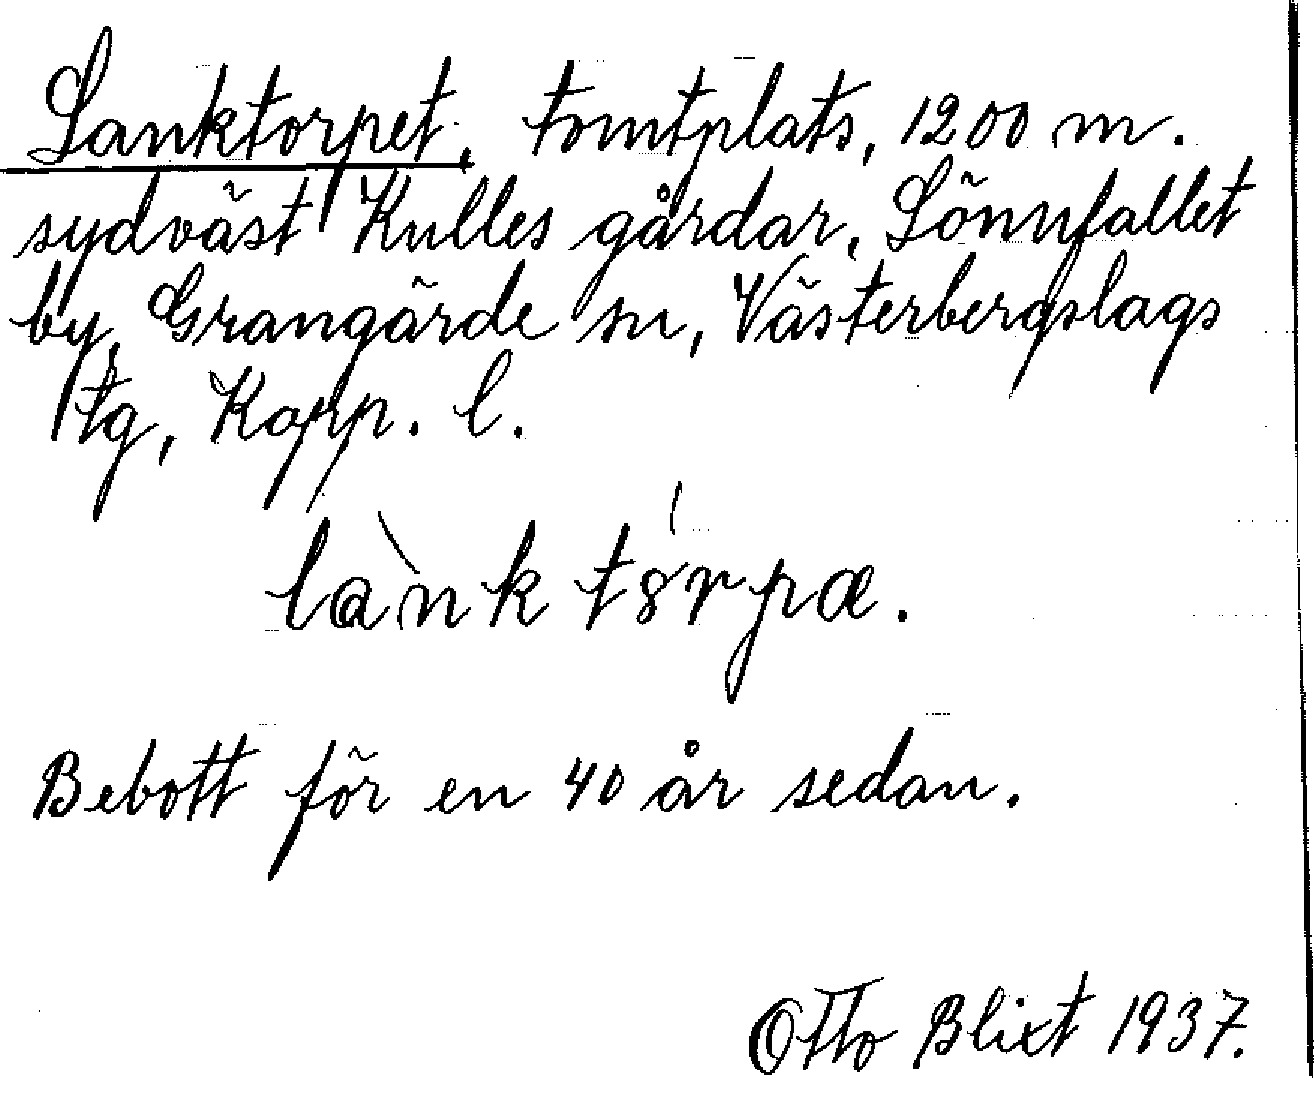 Lanktorpet, tomtplats, 1200 m.
sydväst Kulles gårdar, Lönnfallet
by, Grangärde sn, Västerbergslags
tg, Kopp. l.
lɑ̀nktȣ́rpæ.
Bebott för en 40 år sedan.
Otto Blixt 1937.